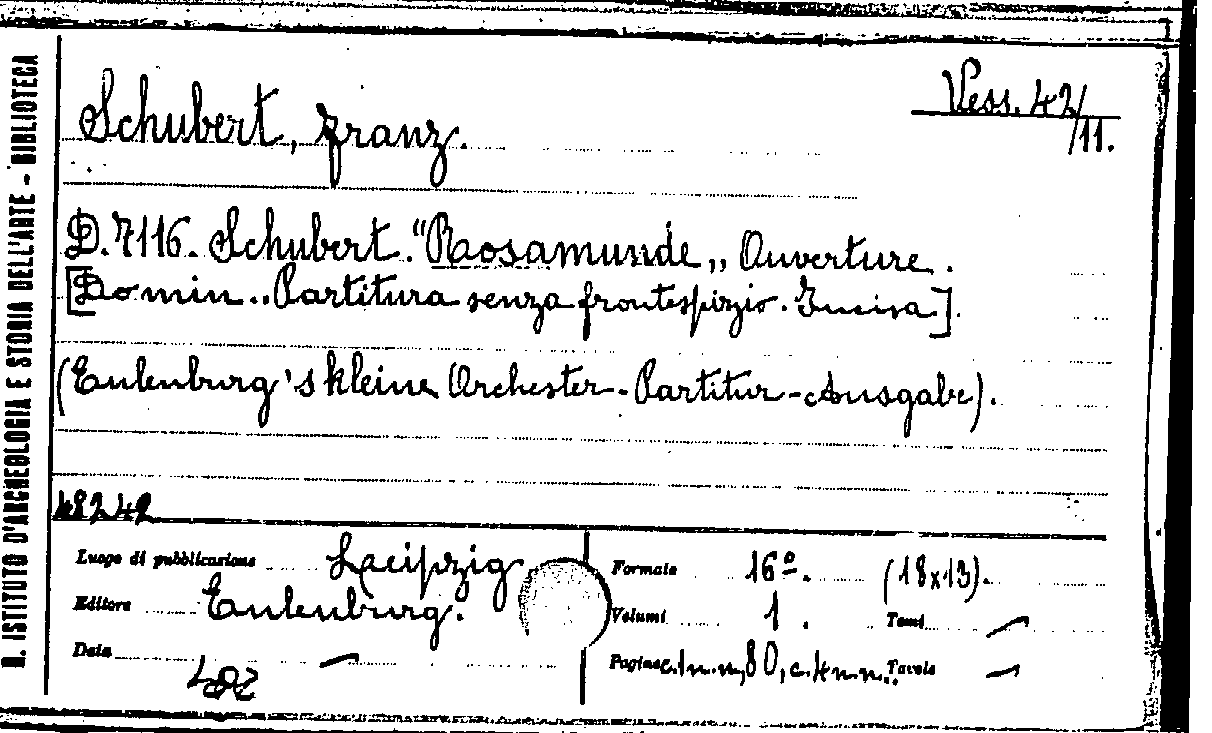 R. ISTITUTO D'ARCHEOLOGIA E STORIA DELL'ARTE - BIBLIOTECA
Vess. 42/11.
Schubert, Franz.
D. 7116. Schubert. "Rosamunde,, Ouverture.
[Domin.. Partitura senza frontespizio. Incisa].
(Eulenburg's kleine Orchester-Partitur-Ausgabe).
48242
Luogo di pubblicazione Laeipzig
Editore Eulenburg.
Data —
Formato 16º. (18x13).
Volumi 1. Tomi —
Pagine c.1n.n, 80, c.4n.n. Tavole —